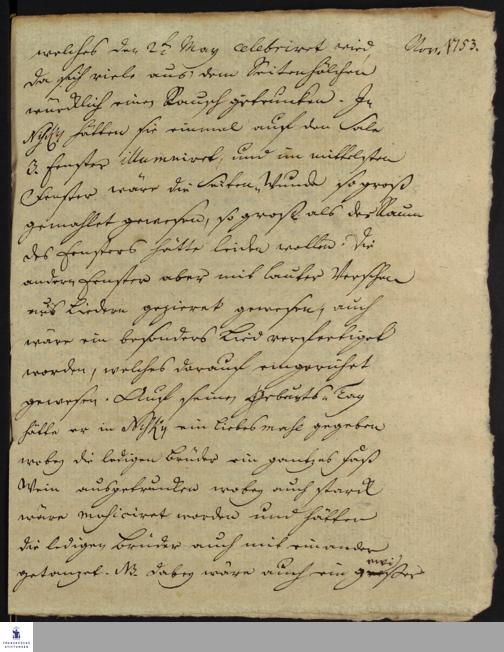 Nov. 1753.
welches den 2t. May celebriret wird,
da sich viele aus dem Seitenhölchen
würcklich einen Rausch getruncken. In
Nisky hätten sie einmal auf den Sale
3. Fenster illuminiret, und im mittelsten
Fenster wäre die Seiten-Wunde so groß
gemahlet gewesen, so groß als der Raum
des Fensters hätte leiden wollen. Die
andern Fenster aber mit lauter Verschen
aus Liedern gezieret gewesen, auch
wäre ein besonders Lied verfertiget
worden, welches darauf eingerichtet
gewesen. Auf seinen Geburts-Tag
hätte er in Nisky ein Liebesmahl gegeben
wobey die ledigen Brüder ein gantzes Faß
Wein ausgetruncken wobey auch starck
wäre musiciret worden und hätten
die ledigen Brüder auch mit einander
getanzet. NB. dabey wäre auch ein großer
FRANCKESCHE
STIFTUNGEN